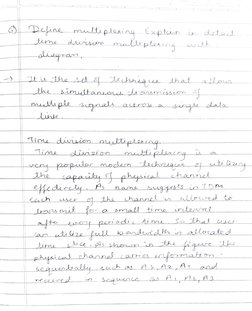 Q) Define multiplexing Explain in detail
time division multiplexing with
diagram.
→ It is the set of Techniques that allows
the simultaneous transmission of
multiple signals across a single data
link
Time division multiplexing.
Time division multiplexing is a
very popular modern technique of utilizing
the capacity of physical channel
effectively. As name suggests in TDM
each user of the channel is allowed to
transmit for a small time interval
after every periodic time. So that user
can utilize full bandwidth in allocated
time slice. As shown in the figure the
physical channel carries information
sequentially such as A3, A2, A1 and
received in sequence as A1, A2, A3